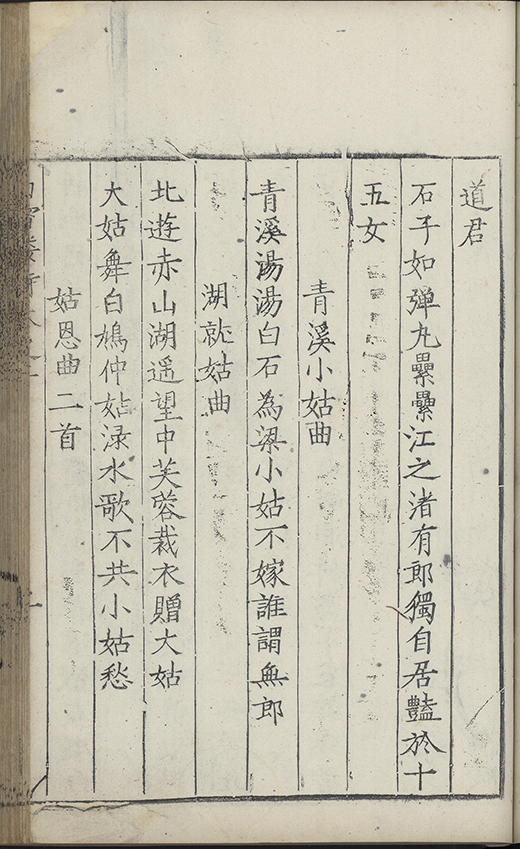 道君
石子如弹丸纍纍江之渚有郎獨自居豔於十
五女
青溪小姑曲
青溪蕩蕩白石為梁小姑不嫁誰謂無郎
湖就姑曲
北遊赤山湖遥望中芙蓉裁衣贈大姑
大姑舞白鳩仲姑渌水歌不共小姑愁
姑恩曲二首